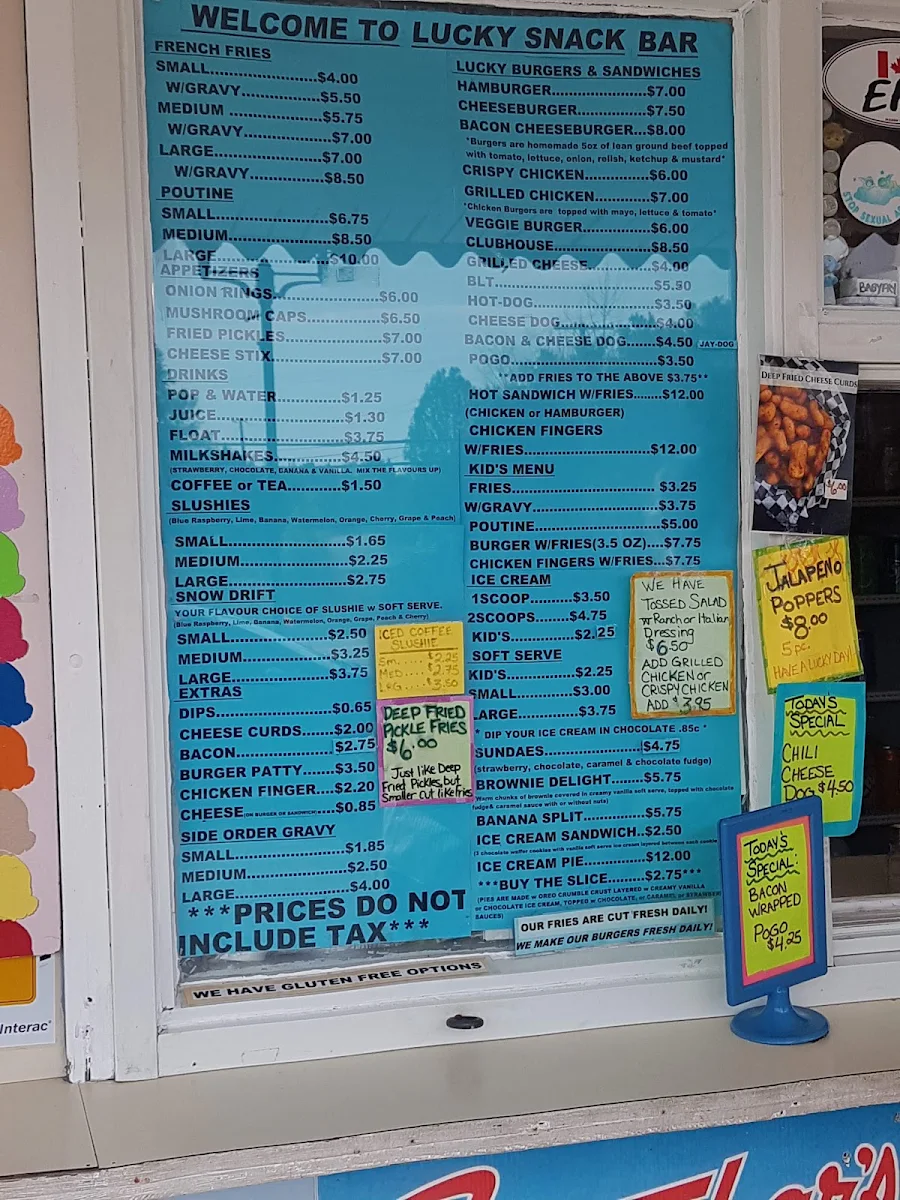 WELCOME TO LUCKY SNACK BAR
FRENCH FRIES
SMALL.....................$4.00
W/GRAVY...............$5.50
MEDIUM ..................$5.75
W/GRAVY.................$7.00
LARGE.....................$7.00
W/GRAVY................$8.50
POUTINE
SMALL.....................$6.75
MEDIUM...................$8.50
LARGE.....................$10.00
APPETIZERS
ONION RINGS................$6.00
MUSHROOM CAPS...........$6.50
FRIED PICKLES..............$7.00
CHEESE STIX.................$7.00
DRINKS
POP & WATER...........$1.25
JUICE.....................$1.30
FLOAT.....................$3.75
MILKSHAKES............$4.50
(STRAWBERRY, CHOCOLATE, BANANA & VANILLA. MIX THE FLAVOURS UP)
COFFEE or TEA...........$1.50
SLUSHIES
(Blue Raspberry, Lime, Banana, Watermelon, Orange, Cherry, Grape & Peach)
SMALL.....................$1.65
MEDIUM...................$2.25
LARGE.....................$2.75
SNOW DRIFT
YOUR FLAVOUR CHOICE OF SLUSHIE w SOFT SERVE.
(Blue Raspberry, Lime, Banana, Watermelon, Orange, Grape, Peach & Cherry)
SMALL.....................$2.50
MEDIUM...................$3.25
LARGE.....................$3.75
EXTRAS
DIPS.......................$0.65
CHEESE CURDS........$2.00
BACON....................$2.75
BURGER PATTY.......$3.50
CHICKEN FINGER.....$2.20
CHEESE(ON BURGER OR SANDWICH)......$0.85
SIDE ORDER GRAVY
SMALL.....................$1.85
MEDIUM...................$2.50
LARGE.....................$4.00
***PRICES DO NOT
INCLUDE TAX***
LUCKY BURGERS & SANDWICHES
HAMBURGER....................$7.00
CHEESEBURGER...............$7.50
BACON CHEESEBURGER...$8.00
*Burgers are homemade 5oz of lean ground beef topped
with tomato, lettuce, onion, relish, ketchup & mustard*
CRISPY CHICKEN...............$6.00
GRILLED CHICKEN.............$7.00
*Chicken Burgers are topped with mayo, lettuce & tomato*
VEGGIE BURGER...............$6.00
CLUBHOUSE....................$8.50
GRILLED CHEESE...............$4.00
BLT...........................$5.50
HOT-DOG.......................$3.50
CHEESE DOG....................$4.00
BACON & CHEESE DOG......$4.50 JAY-DOG
POGO..........................$3.50
**ADD FRIES TO THE ABOVE $3.75**
HOT SANDWICH W/FRIES........$12.00
(CHICKEN or HAMBURGER)
CHICKEN FINGERS
W/FRIES.......................$12.00
KID'S MENU
FRIES.........................$3.25
W/GRAVY.......................$3.75
POUTINE.......................$5.00
BURGER W/FRIES(3.5 OZ)....$7.75
CHICKEN FINGERS W/FRIES...$7.75
ICE CREAM
1SCOOP.............$3.50
2SCOOPS............$4.75
KID'S................$2.25
SOFT SERVE
KID'S................$2.25
SMALL...............$3.00
LARGE...............$3.75
* DIP YOUR ICE CREAM IN CHOCOLATE .85c *
SUNDAES.....................$4.75
(strawberry, chocolate, caramel & chocolate fudge)
BROWNIE DELIGHT.......$5.75
Warm chunks of brownie covered in creamy vanilla soft serve, topped with chocolate
fudge& caramel sauce with or without nuts)
BANANA SPLIT............$5.75
ICE CREAM SANDWICH..$2.50
(2 chocolate waffer cookies with vanilla soft serve ice cream layered between each cookie
ICE CREAM PIE............$12.00
***BUY THE SLICE........$2.75***
(PIES ARE MADE w OREO CRUMBLE CRUST LAYERED w CREAMY VANILLA
or CHOCOLATE ICE CREAM, TOPPED w CHOCOLATE, or CARAMEL, or STRAWBER
SAUCES)
OUR FRIES ARE CUT FRESH DAILY!
WE MAKE OUR BURGERS FRESH DAILY!
WE HAVE GLUTEN FREE OPTIONS
ICED COFFEE
SLUSHIE
Sm.....$2.25
MED....$2.75
LRG....$3.50
DEEP FRIED
PICKLE FRIES
$6.00
Just like Deep
Fried Pickles, but
Smaller cut like fries
WE HAVE
TOSSED SALAD
w Ranch or Italian
Dressing
$6.50
ADD GRILLED
CHICKEN or
CRISPY CHICKEN
ADD $3.95
DEEP FRIED CHEESE CURDS
$6.00
JALAPENO
POPPERS
$8.00
5 pc.
HAVE A LUCKY DAY!
TODAY'S
SPECIAL
CHILI
CHEESE
DOG $4.50
TODAY'S
SPECIAL:
BACON
WRAPPED
POGO
$4.25
STOP SEXUAL
BABYFRY
Interac